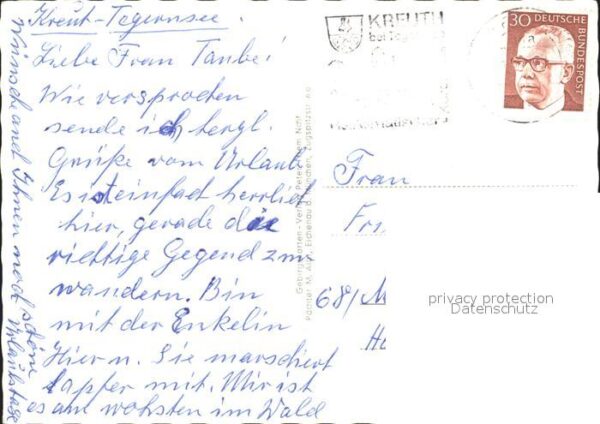 Kreut-Tegernsee.
Liebe Frau Taube!
Wie versprochen
sende ich hergl.
Grüße vom Urlaub.
Es ist einfach herrlich
hier, gerade die
richtige Gegend zum
wandern. Bin
mit der Enkelin
Hier u. Sie marschiert
tapfer mit. Mir ist
es am wohsten im Wald
und Ihnen noch schöne
Urlaubstage
KREUTH
bei Tegernsee
30 DEUTSCHE
BUNDESPOST
Frau
Fr
68/M
privacy protection
Datenschutz